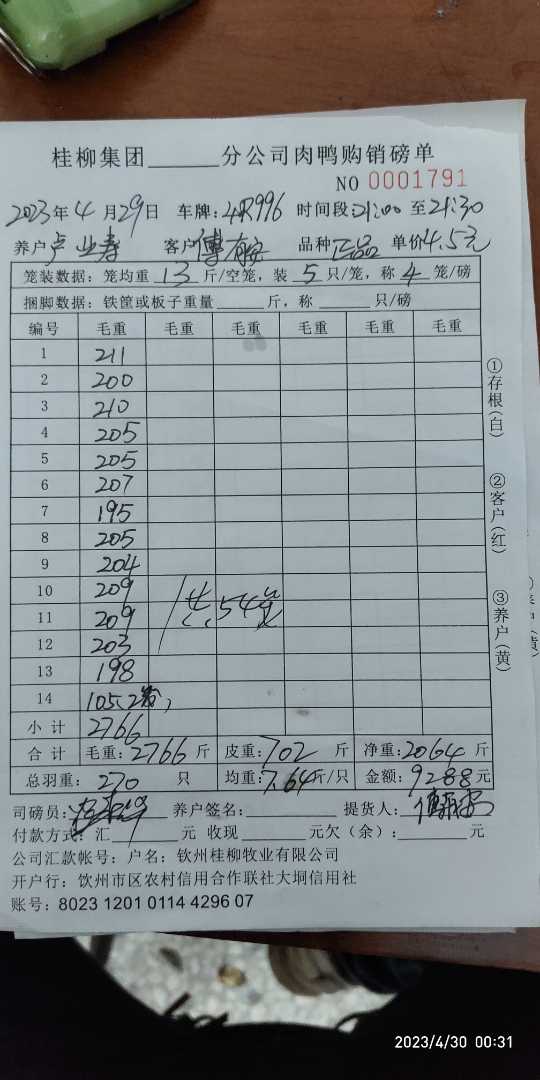 桂柳集团______分公司肉鸭购销磅单
NO 0001791
2023年4月29日 车牌:4R996 时间段21:00至21:30
养户卢业寿 客户傅 品种正品 单价4.5元
笼装数据:笼均重13斤/空笼,装5只/笼,称4笼/磅
捆脚数据:铁筐或板子重量______斤,称______只/磅
编号 毛重 毛重 毛重 毛重 毛重 毛重
1 211
2 200
3 210
4 205
5 205
6 207
7 195
8 205
9 204
10 209
11 209
共54笼
12 203
13 198
14 105.2笼,
小计 2766
合计 毛重:2766斤 皮重:702斤 净重:2064斤
总羽重:270只 均重:7.64斤/只 金额:9288元
司磅员: 养户签名:______ 提货人:
付款方式:汇______元 收现______元欠(余):______元
公司汇款帐号:户名:钦州桂柳牧业有限公司
开户行:饮州市区农村信用合作联社大垌信用社
账号:8023 1201 0114 4296 07
①存根(白)
②客户(红)
③养户(黄)
2023/4/30 00:31